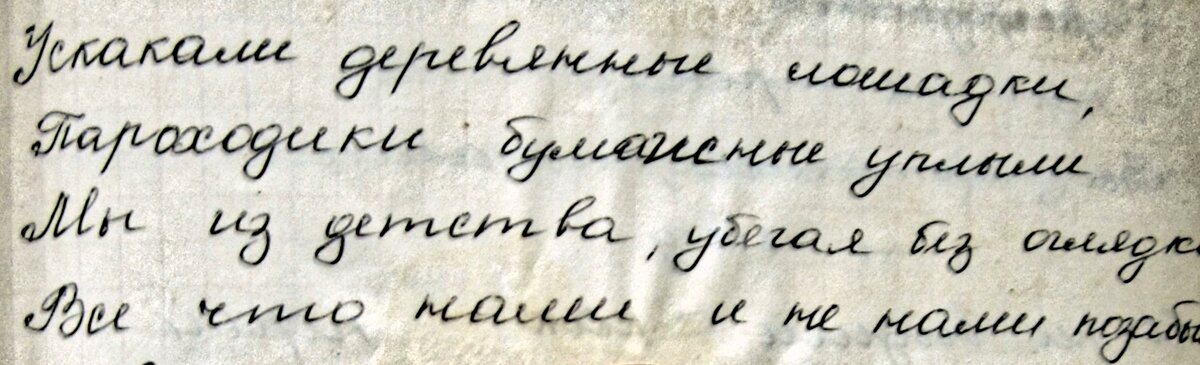 Ускакали деревянные лошадки,
Пароходики бумажные уплыли
Мы из детства, убегая без оглядк
Все что нами и не нами позабы